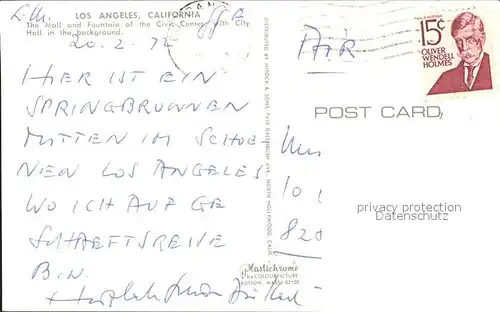 L.A.
LOS ANGELES, CALIFORNIA
The Mall and Fountain of the Civic Center, with City
Hall in the background.
20.2.72
HIER IST EYN
SPRINGBRUNNEN
MITTEN IM SCHOE-
NEN LOS ANGELES
WO ICH AUF GE
SCHAEFTSREISE
BIN.
DISTRIBUTED BY MITOCK & SONS, NORTH HOLLYWOOD, CALIF.
Plastichrome
by COLOURPICTURE
BOSTON, MASS. 02130
AIR
15¢
OLIVER
WENDELL
HOLMES
POST CARD
privacy protection
Datenschutz